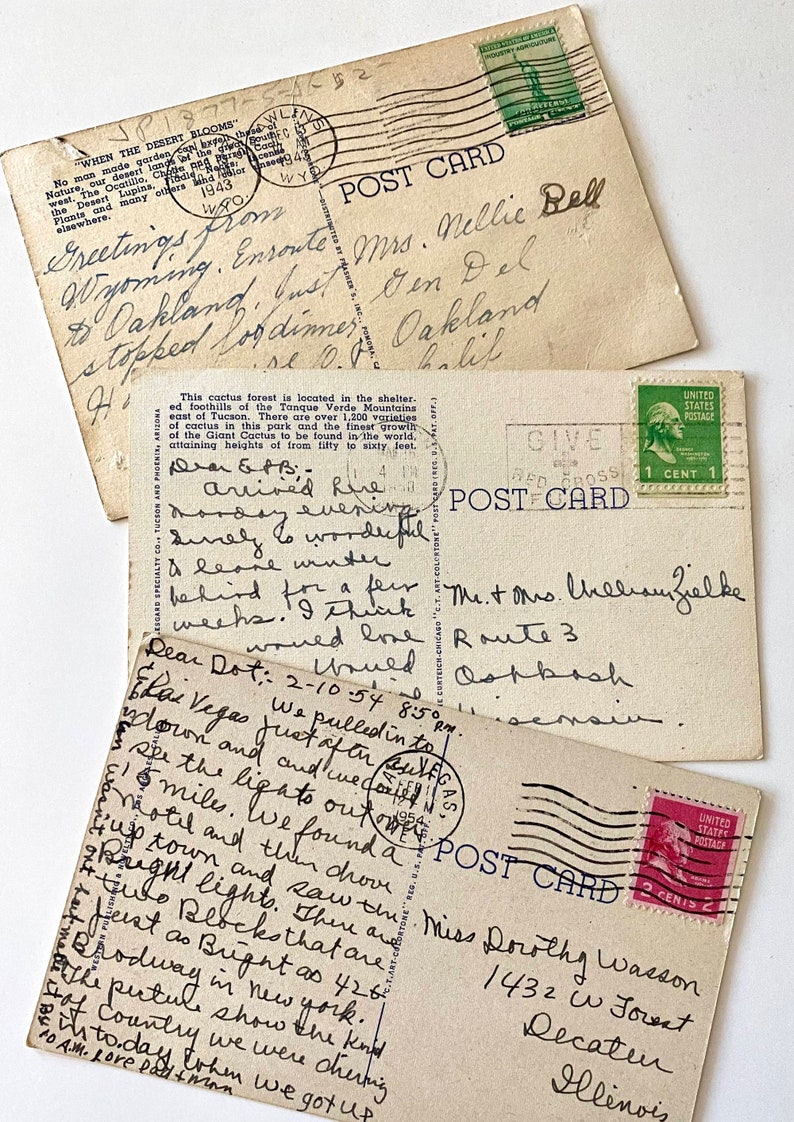 "WHEN THE DESERT BLOOMS"
No man made garden can excel these of
Nature, our desert lands of the great South-
west. The Ocatillo, Cholla and Barrel Cacti,
the Desert Lupins, Fiddle Necks, Incense
Plants and many others lend color unseen
elsewhere.
1943
WYO.
RAWLINS
1943
WYO.
UNITED STATES OF AMERICA
INDUSTRY AGRICULTURE
FOR DEFENSE
POSTAGE 1¢
POST CARD
DISTRIBUTED BY FRASHER'S, INC., POMONA,
Greetings from
Wyoming. Enroute
to Oakland. Just
stopped for dinner
Mrs. Nellie Bell
Gen Del
Oakland
Calif
This cactus forest is located in the shelter-
ed foothills of the Tanque Verde Mountains
east of Tucson. There are over 1,200 varieties
of cactus in this park and the finest growth
of the Giant Cactus to be found in the world,
attaining heights of from fifty to sixty feet.
LESGARD SPECIALTY CO., TUCSON AND PHOENIX, ARIZONA
Dear
Arrived here
Monday evening.
Surely is wonderful
to leave winter
behind for a few
weeks. I think
would love
Would
CURTEICH-CHICAGO "C.T. ART-COLORTONE" POST CARD (REG. U.S. PAT. OFF.)
GIVE
RED CROSS
UNITED
STATES
POSTAGE
GEORGE
WASHINGTON
1 CENT 1
POST CARD
Mr. & Mrs. William Zielke
Route 3
Oshkosh
Wisconsin.
Dear Dot:- 2-10-54 8:50 P.M.
We pulled in to
Las Vegas just after sun
down and and we could
see the lights out over
15 miles. We found a
Motel and then drove
up town and saw the
Bright lights. There are
two Blocks that are
Just as Bright as 42 &
Broadway in New York.
The picture show the kind
of Country we were driving
in to-day when we got up
10 A.M. Love Dad & Mom
WESTERN PUBLISHING & NOVELTY
"C.T. ART-COLORTONE" REG. U.S. PAT. OFF.
LAS VEGAS,
FEB
1954
UNITED
STATES
POSTAGE
ADAMS
2 CENTS 2
POST CARD
Miss Dorothy Wasson
1432 W Forest
Decatur
Illinois